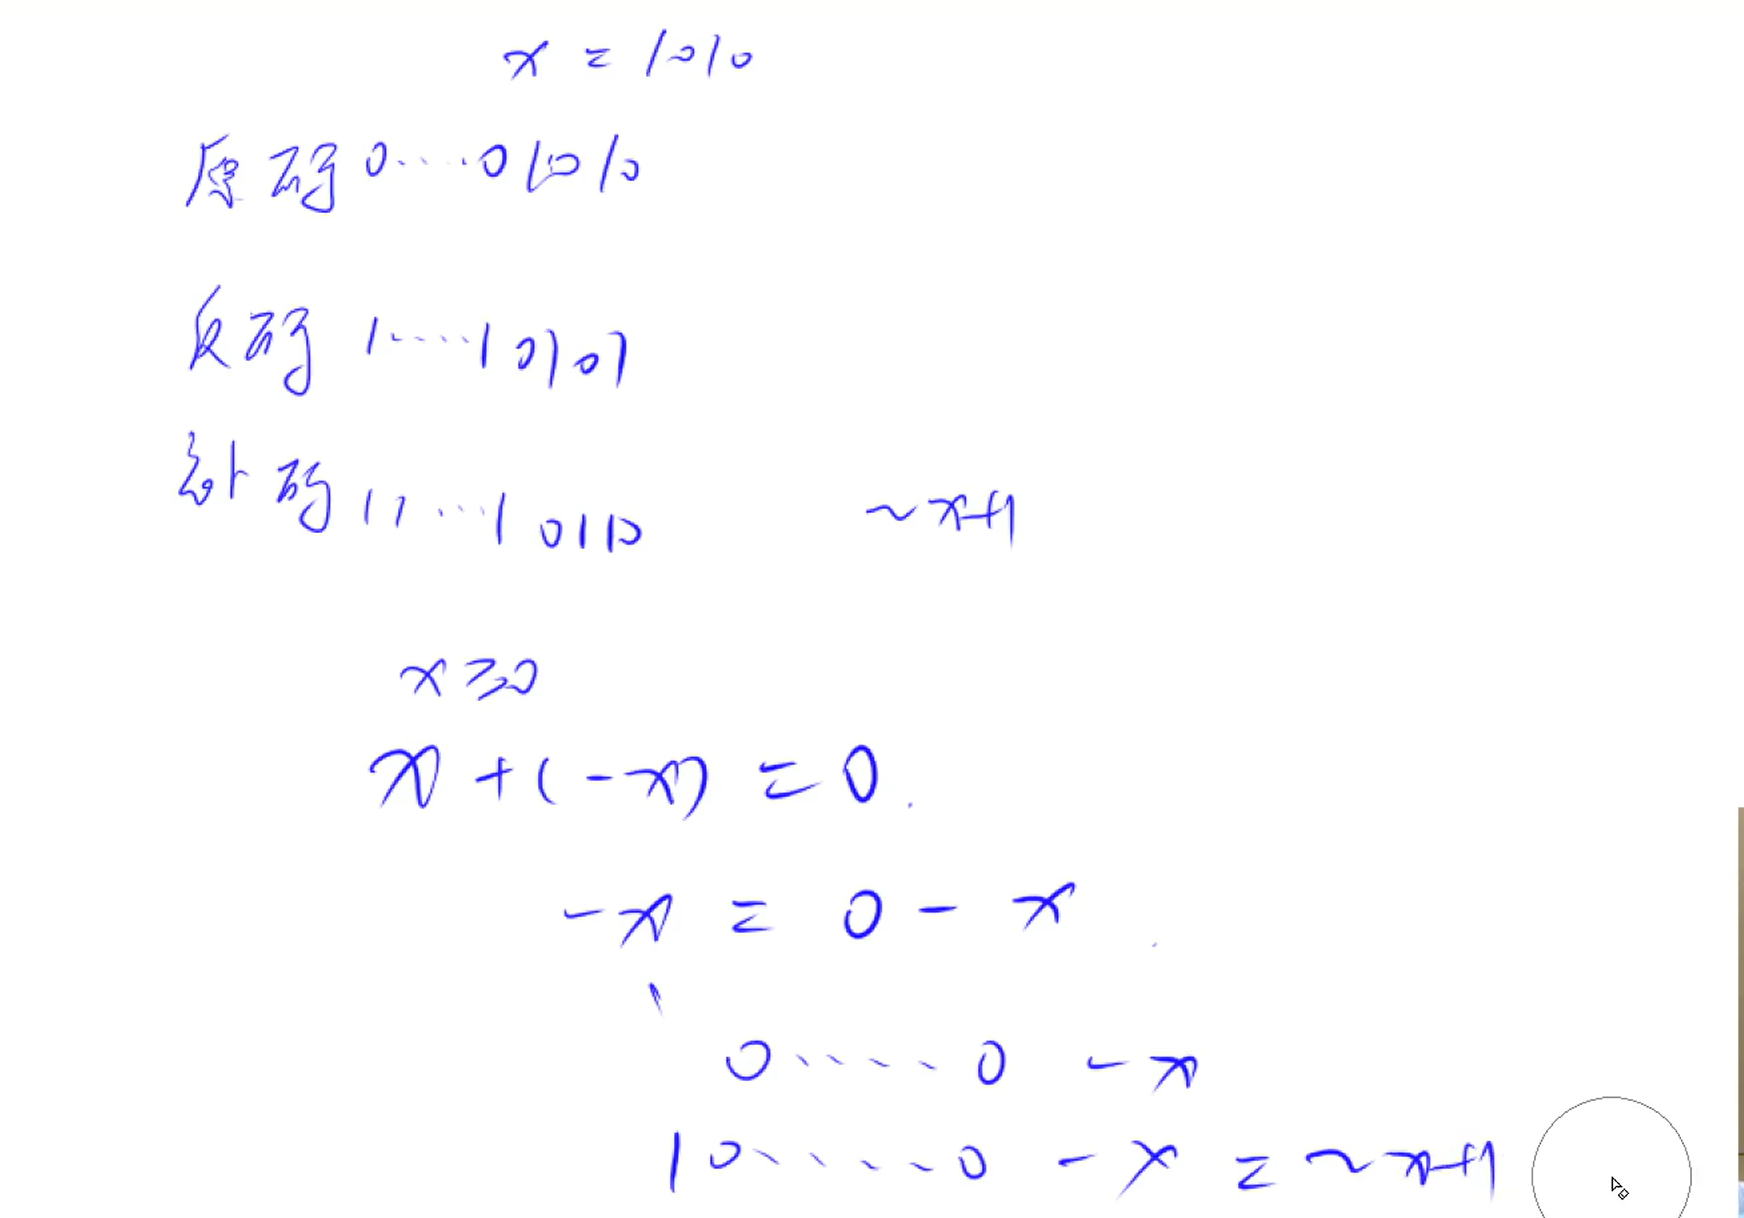 x = 1010
原码 0....01010
反码 1....10101
补码 11...10110 ~x+1
x≥0
x+(-x)=0.
-x = 0-x
0....0 -x
10....0 -x = ~x+1